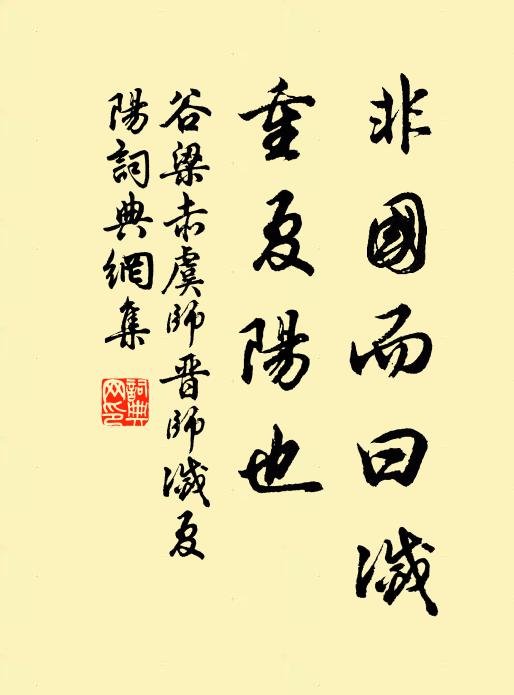 非國而曰滅
重夏陽也
谷梁赤虞師晋師滅夏
陽詞典網集
詞典
网印